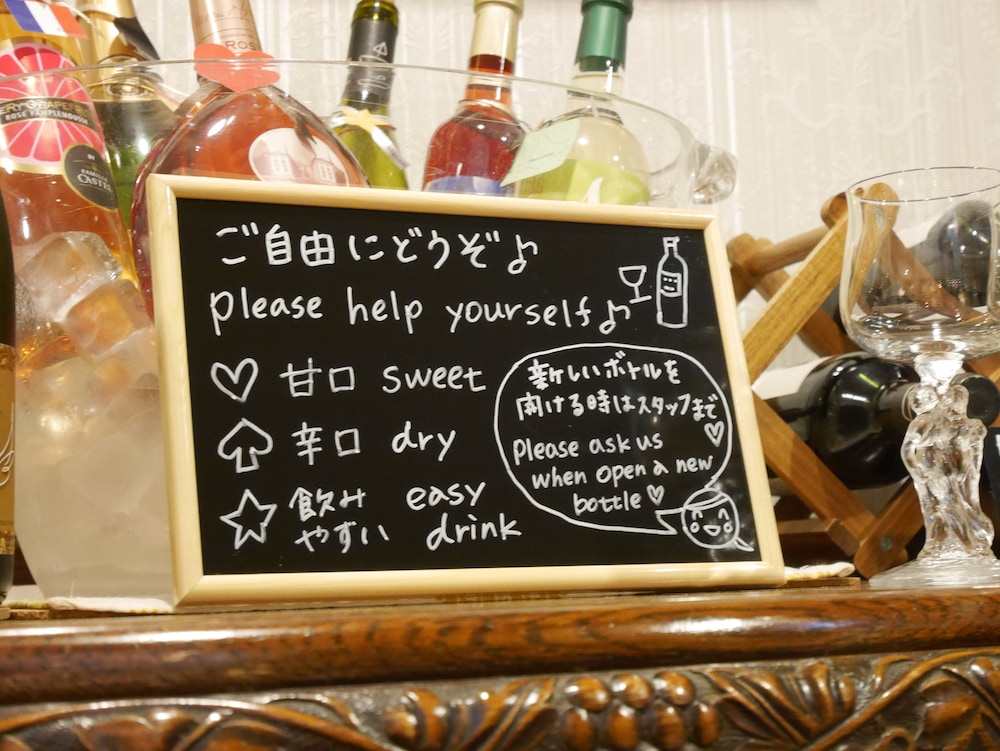 ご自由にどうぞ♪
please help yourself♪
♡ 甘口 sweet
♠ 辛口 dry
☆ 飲み
やすい
easy
drink
新しいボトルを
開ける時はスタッフまで
♡
please ask us
when open a new
bottle♡
ROSÉ PAMPLEMOUSSE
BY
FAMILLE
CASTEL
ROS